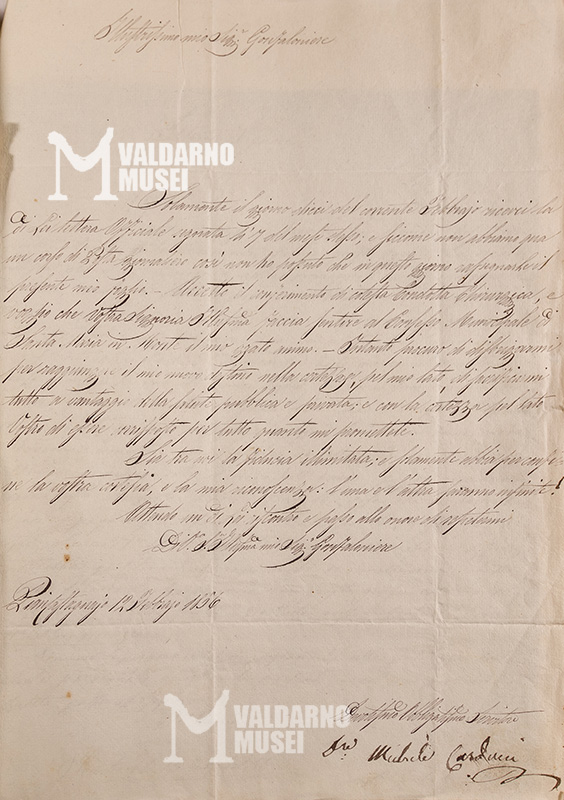 Illustrissimo mio Sig.r Gonfaloniere
VALDARNO
MUSEI
Solamente il giorno dieci del corrente Febbrajo ricevei la
di Lei lettera Officiale segnata li 7 del mese stesso; e siccome non abbiamo qua
un corso di Posta giornaliero così non ho potuto che in questo giorno
presente mio foglio. – Accetto il conferimento di cotesta Condotta Chirurgica, e
voglio che Vostra Signoria Ill.ma faccia al Consesso Municipale di
Santa Maria in Monte il mio grato animo. – Intanto procuro di disbrigarmi
per raggiungere il mio nuovo destino nella certezza, pel mio lato di
tutto a vantaggio della pubblica e privata; e con la certezza pel lato
Vostro di essere per tutto quanto mi promettete.
Sia tra noi la fiducia illimitata; e solamente abbia per confi-
ne la vostra cortesia, e la mia riconoscenza: l'una e l'altra saranno infinite!
Attendo un di Lei riscontro e passo all'onore di ripetermi
Di V. S. Ill.ma mio Sig.r Gonfaloniere
Piancastagnajo 12 Febbrajo 1856
VALDARNO
MUSEI
Devotissimo Obbligatissimo Servitore
Dre. Michele Carducci